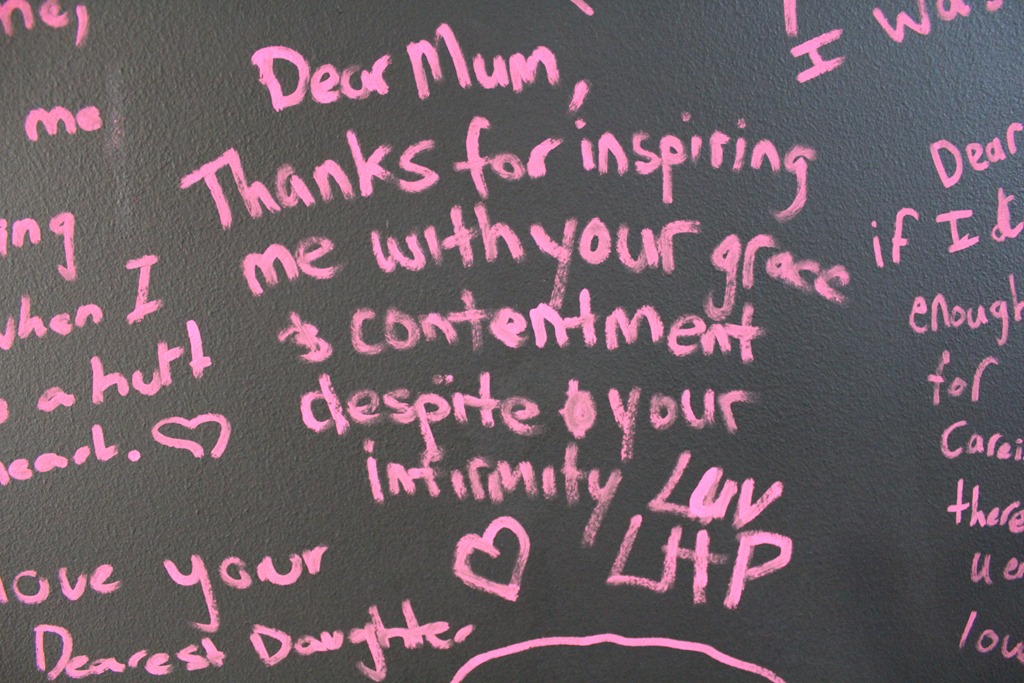 me
ing
when I
a hurt
heart.
love your
Dearest Daughter
Dear Mum,
Thanks for inspiring
me with your grace
& contentment
despite your
infirmity Luv
LHP
I
I was
Dear
if I
enough
for
there